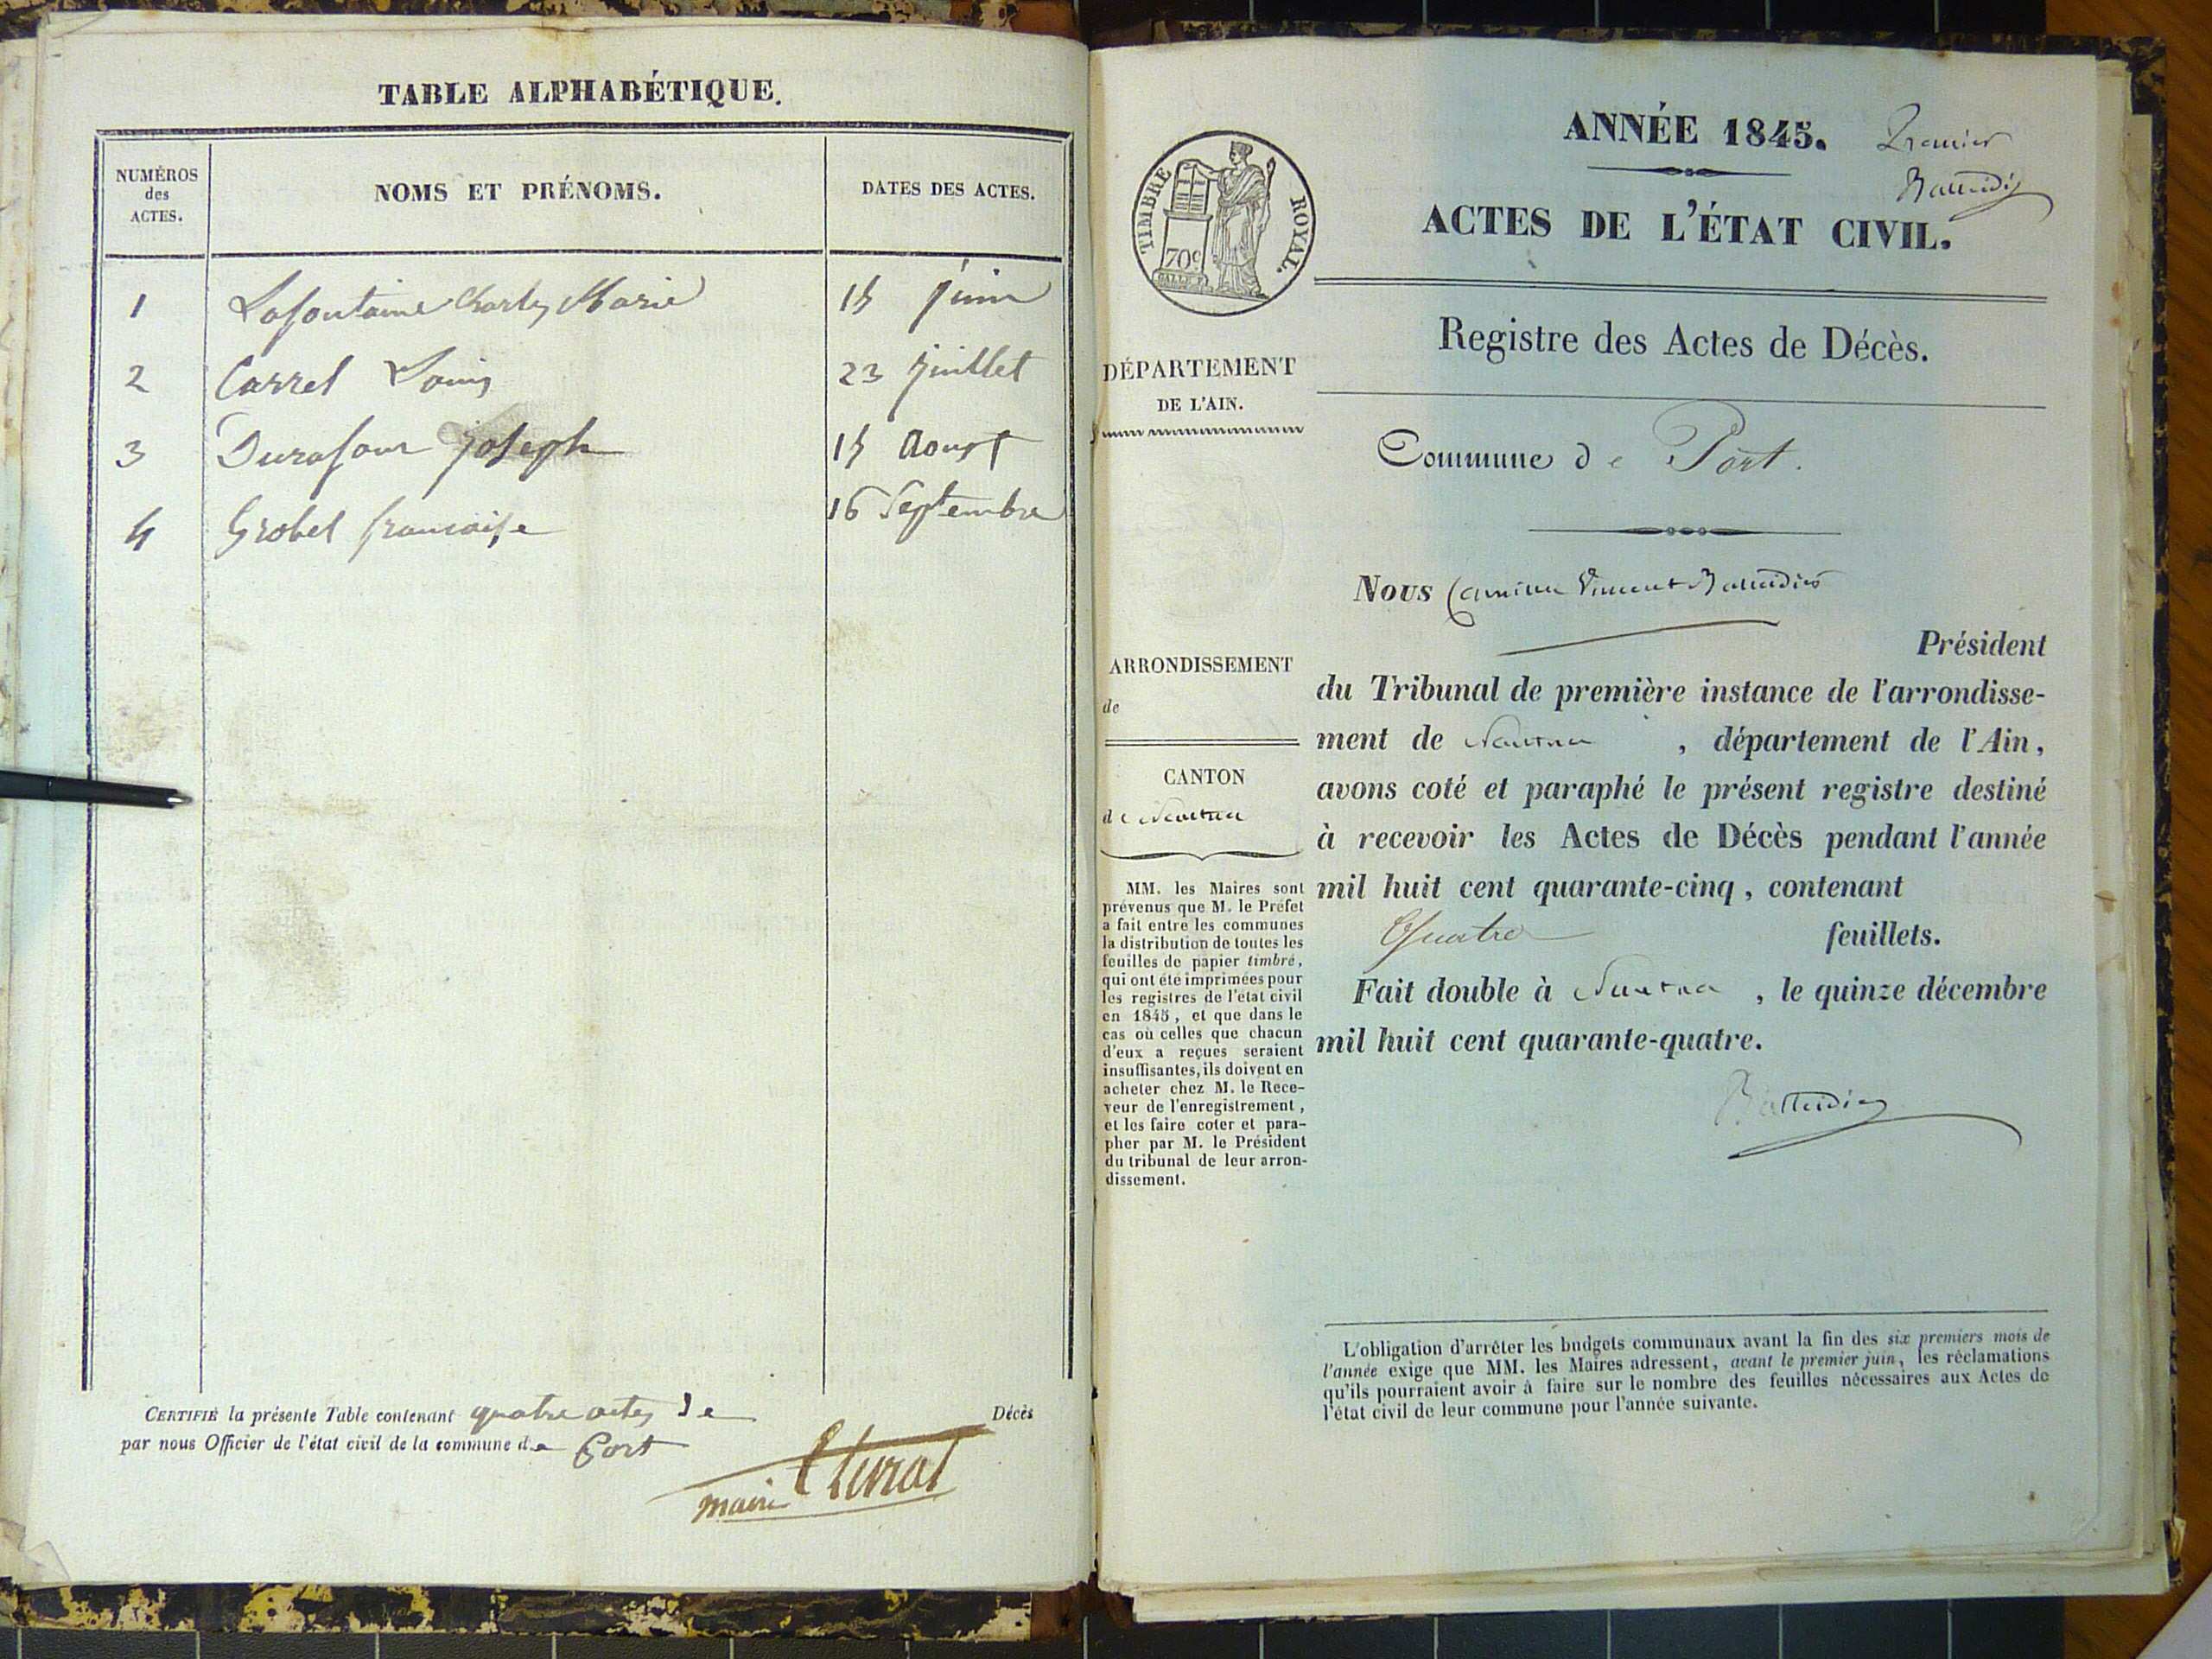 TABLE ALPHABÉTIQUE.
NUMÉROS
des
ACTES.
NOMS ET PRÉNOMS.
DATES DES ACTES.
1 Lafontaine Charles Marie 15 juin
2 Carrel Louis 23 juillet
3 Durafour joseph 15 Aoust
4 Grobel francoise 16 Septembre
CERTIFIÉ la présente Table contenant quatre actes de Décès
par nous Officier de l'état civil de la commune de Port
maire
ANNÉE 1845.
Premier
ACTES DE L'ÉTAT CIVIL.
TIMBRE ROYAL.
70c
Registre des Actes de Décès.
DÉPARTEMENT
DE L'AIN.
Commune de Port.
ARRONDISSEMENT
de
CANTON
de Nantua
MM. les Maires sont
prévenus que M. le Préfet
a fait entre les communes
la distribution de toutes les
feuilles de papier timbré,
qui ont été imprimées pour
les registres de l'état civil
en 1845, et que dans le
cas où celles que chacun
d'eux a reçues seraient
insuffisantes, ils doivent en
acheter chez M. le Rece-
veur de l'enregistrement,
et les faire coter et para-
pher par M. le Président
du tribunal de leur arron-
dissement.
Nous Camille Vincent
Président
du Tribunal de première instance de l'arrondisse-
ment de Nantua, département de l'Ain,
avons coté et paraphé le présent registre destiné
à recevoir les Actes de Décès pendant l'année
mil huit cent quarante-cinq, contenant
Quatre feuillets.
Fait double à Nantua, le quinze décembre
mil huit cent quarante-quatre.
L'obligation d'arrêter les budgets communaux avant la fin des six premiers mois de
l'année exige que MM. les Maires adressent, avant le premier juin, les réclamations
qu'ils pourraient avoir à faire sur le nombre des feuilles nécessaires aux Actes de
l'état civil de leur commune pour l'année suivante.